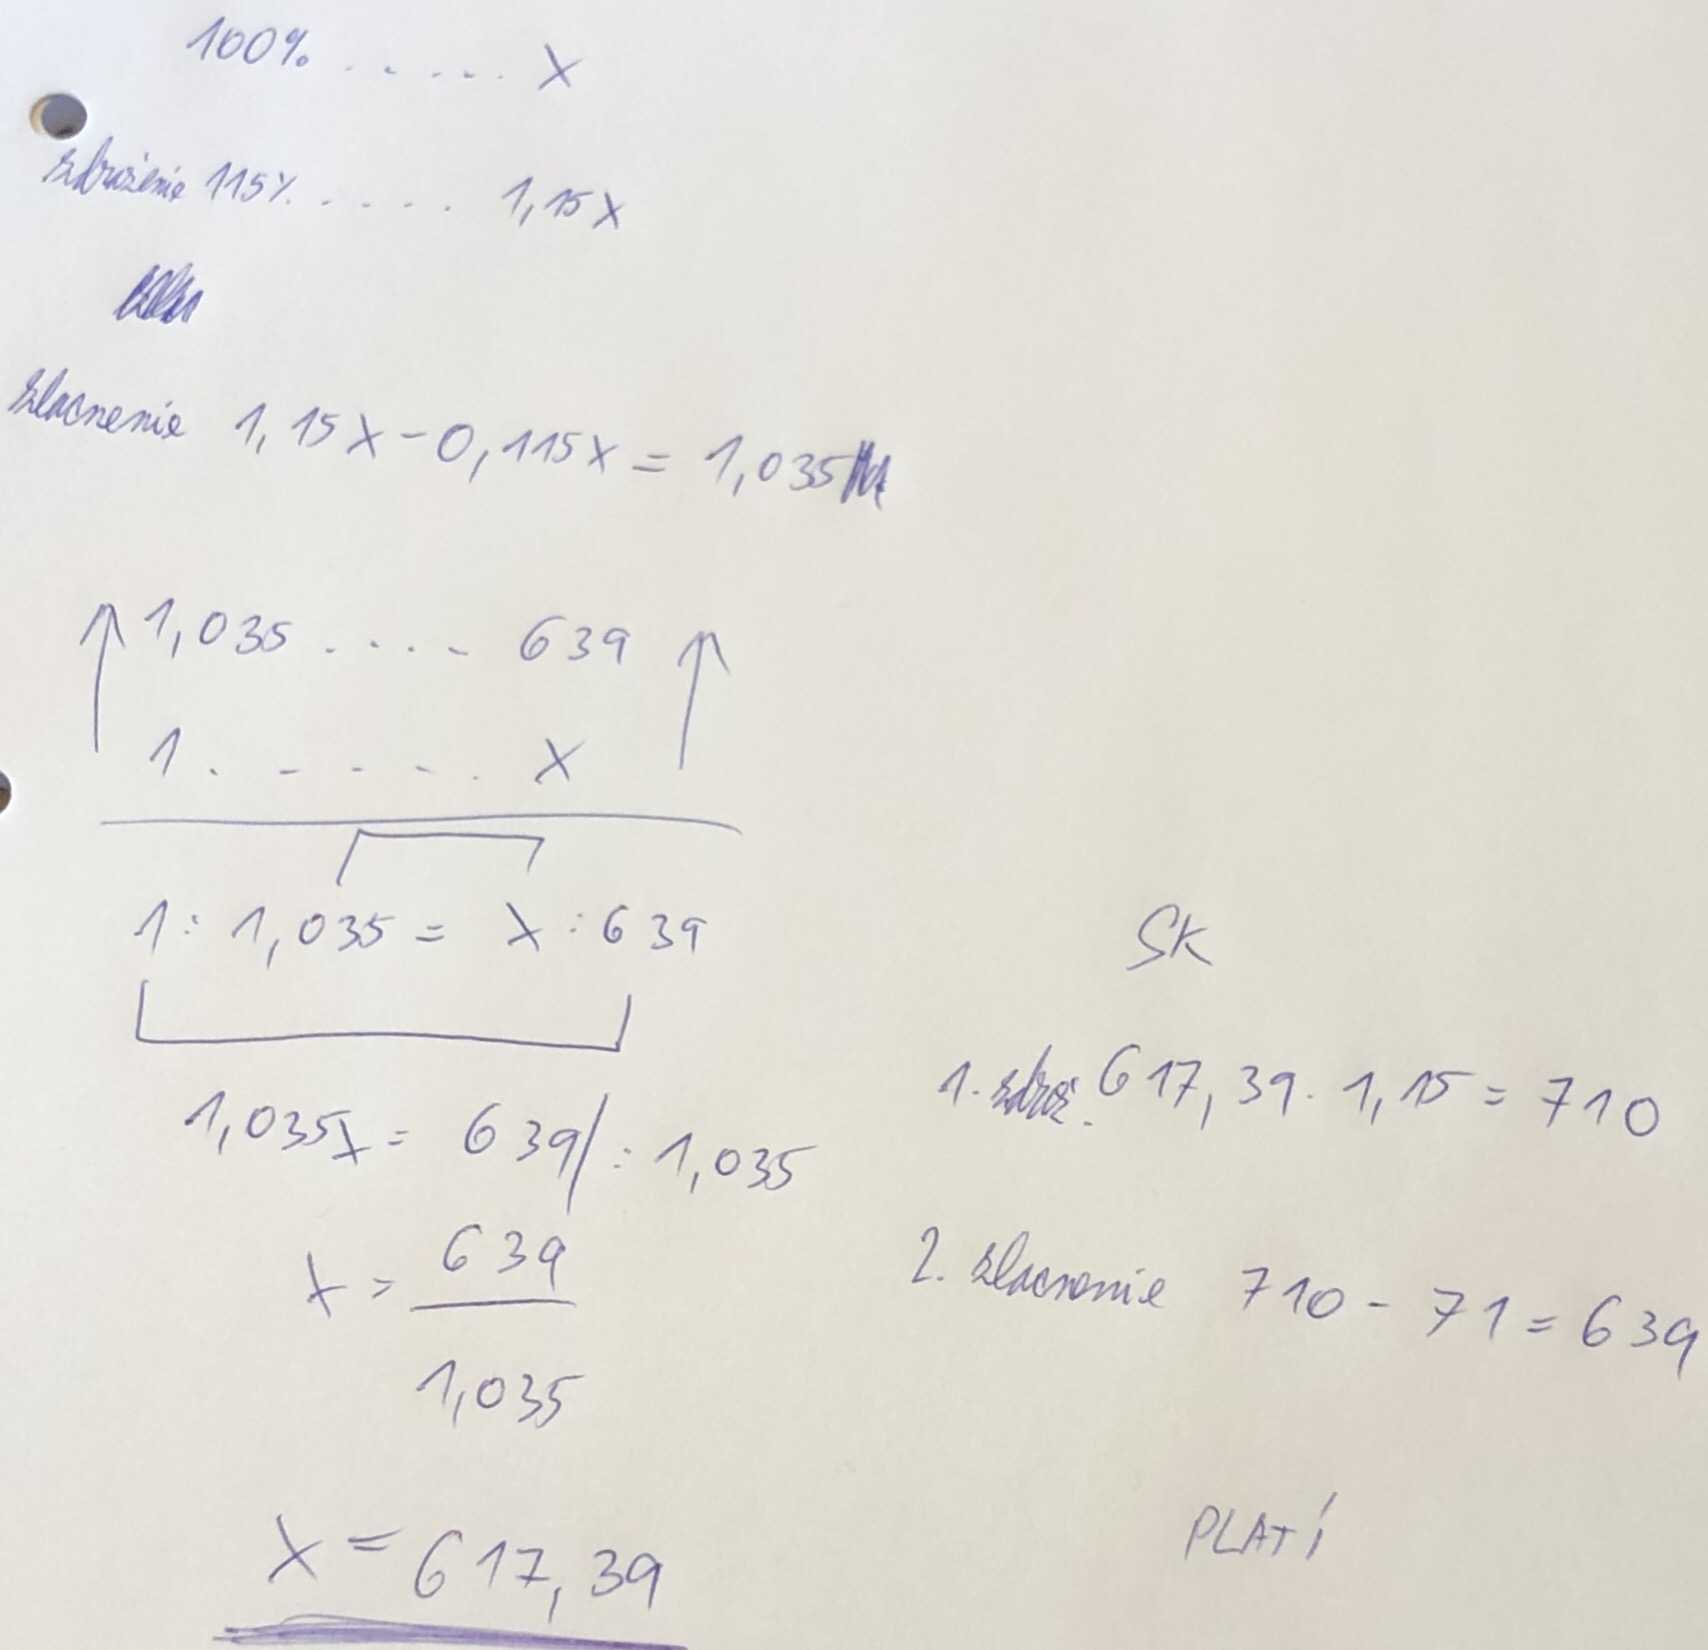 100% ..... x
zdraženie 115% ..... 1,15x
zlacnenie 1,15x - 0,115x = 1,035
1,035 ..... 639
1 ...... x
1 : 1,035 = x : 639
1,035x = 639 / : 1,035
x = 639
1,035
x = 617,39
SK
1. zdraž. 617,39 . 1,15 = 710
2. zlacnenie 710 - 71 = 639
PLATÍ